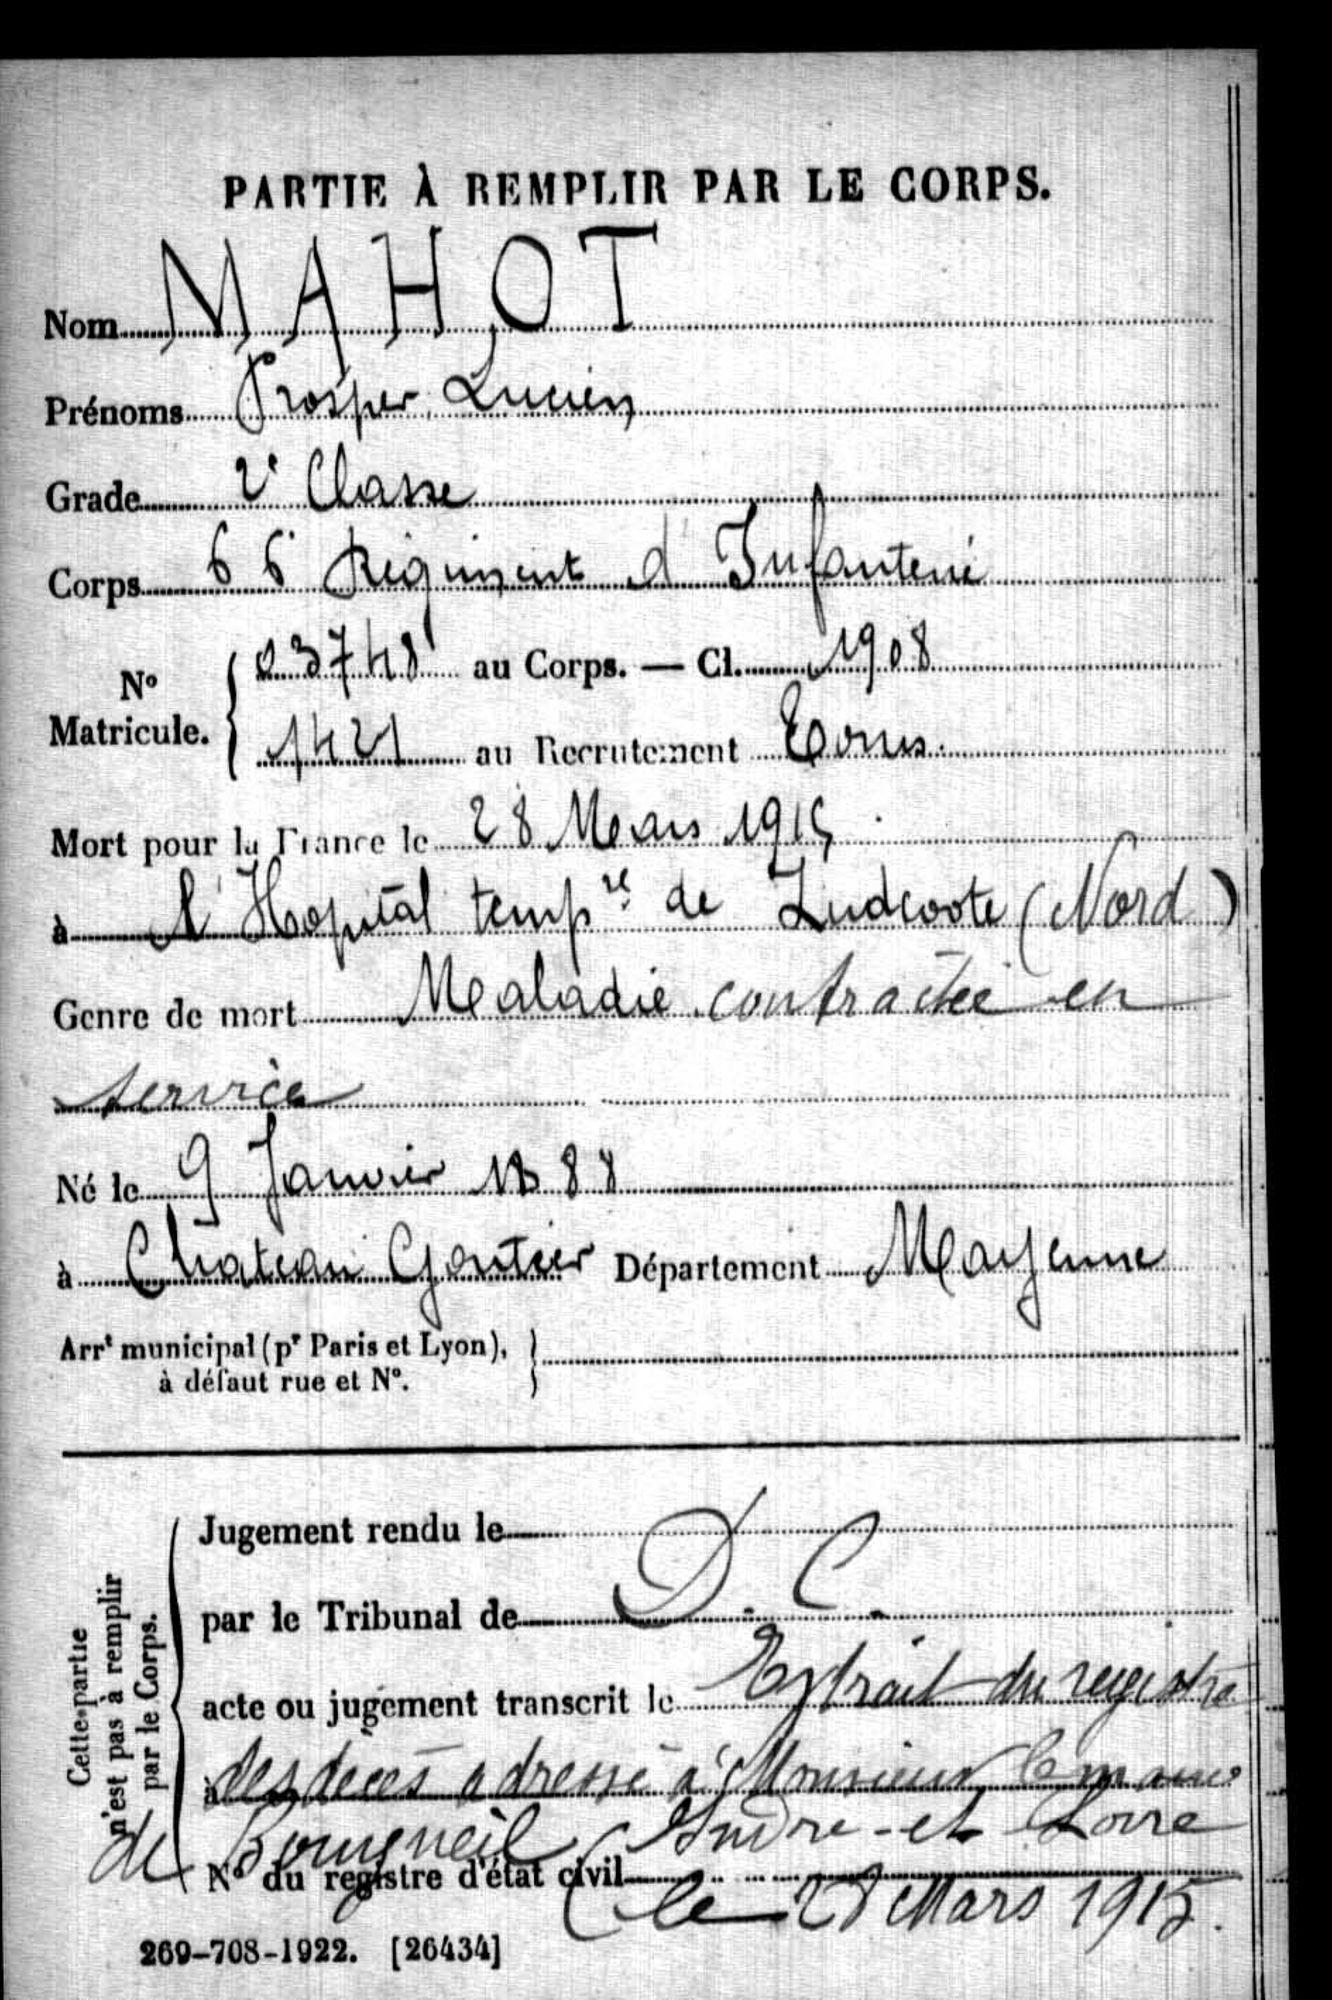 PARTIE À REMPLIR PAR LE CORPS.
Nom MAHOT
Prénoms Prosper Lucien
Grade 2e Classe
Corps 66e Régiment d'Infanterie
No Matricule. { 03748 au Corps. — Cl. 1908
1421 au Recrutement Tours.
Mort pour la France le 28 Mars 1915
à l'Hopital tempre de Zudcoote (Nord)
Genre de mort Maladie contractée en
service
Né le 9 Janvier 1888
à Chateau Gontier Département Mayenne
Arrt municipal (pr Paris et Lyon), à défaut rue et No. }
Cette partie n'est pas à remplir par le Corps.
Jugement rendu le
par le Tribunal de D. C.
acte ou jugement transcrit le Extrait du registre
à des décès adressé à Monsieur le maire
de Bourgueil (Indre-et-Loire
No du registre d'état civil
(le 28 Mars 1915.
269-708-1922. [26434]